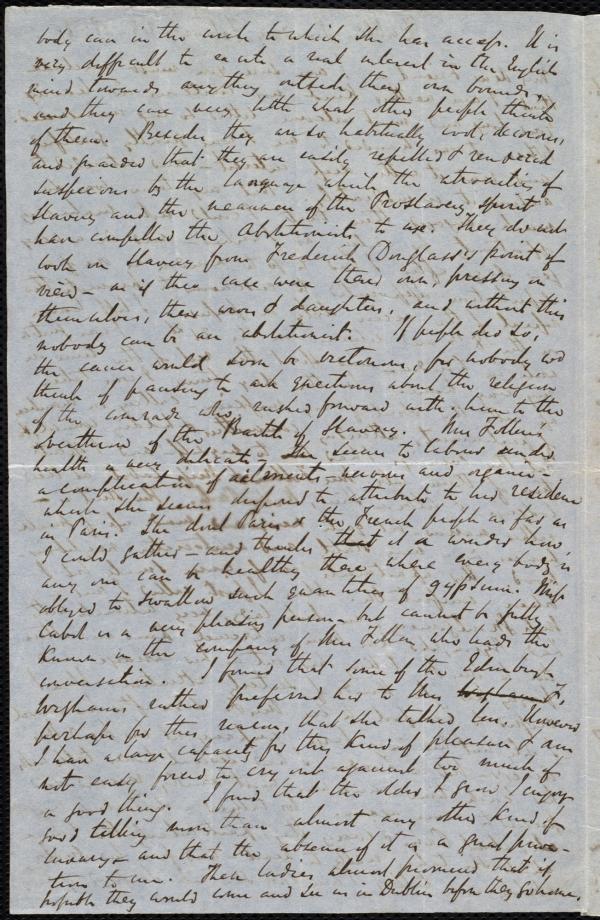 body can in the circle to which she has access. It is
very difficult to excite a real interest in the English
mind towards anything outside their own bounds,
and they care very little what other people think
of them. Besides they are so habitually cool, decorous,
and guarded that they are easily repelled & rendered
suspicious by the language which the atrocities of
Slavery and the meanness of the Proslavery spirit
have compelled the Abolitionists to use. They do not
look on Slavery from Frederick Douglass's point of
view - as if the case were their own, pressing on
themselves, their wives & daughters, and without this
nobody can be an abolitionist. If people did so,
the cause would soon be victorious, for nobody wd
think of pausing to ask questions about the religion
of the comrade who rushed forward with him to the
overthrow of the Bastile of Slavery. Mrs Follen's
health is very delicate. She seems to labour under
a complication of ailments - nervous and organic -
which she seems disposed to attribute to her residence
in Paris. She dont Paris & the French people as far as
I could gather - and thinks it a wonder how
any one can be healthy there where every body is
obliged to swallow such quantities of gypsum. Miss
Cabot is a very pleasing person - but cannot be fully
known in the company of Mrs Follen who leads the
conversation. I found that some of the Edinburgh
Wighams rather preferred her to Mrs F,
perhaps for this reason, that she talked less. However
I have a large capacity for this kind of pleasure & am
not easily forced to cry out against too much of
a good thing. I find that the older I grow I enjoy
good talking more than almost any other kind of
luxury - and that the absence of it is a great priva-
tion to me. These ladies almost promised that if
possible they would come and see us in Dublin before they go home.